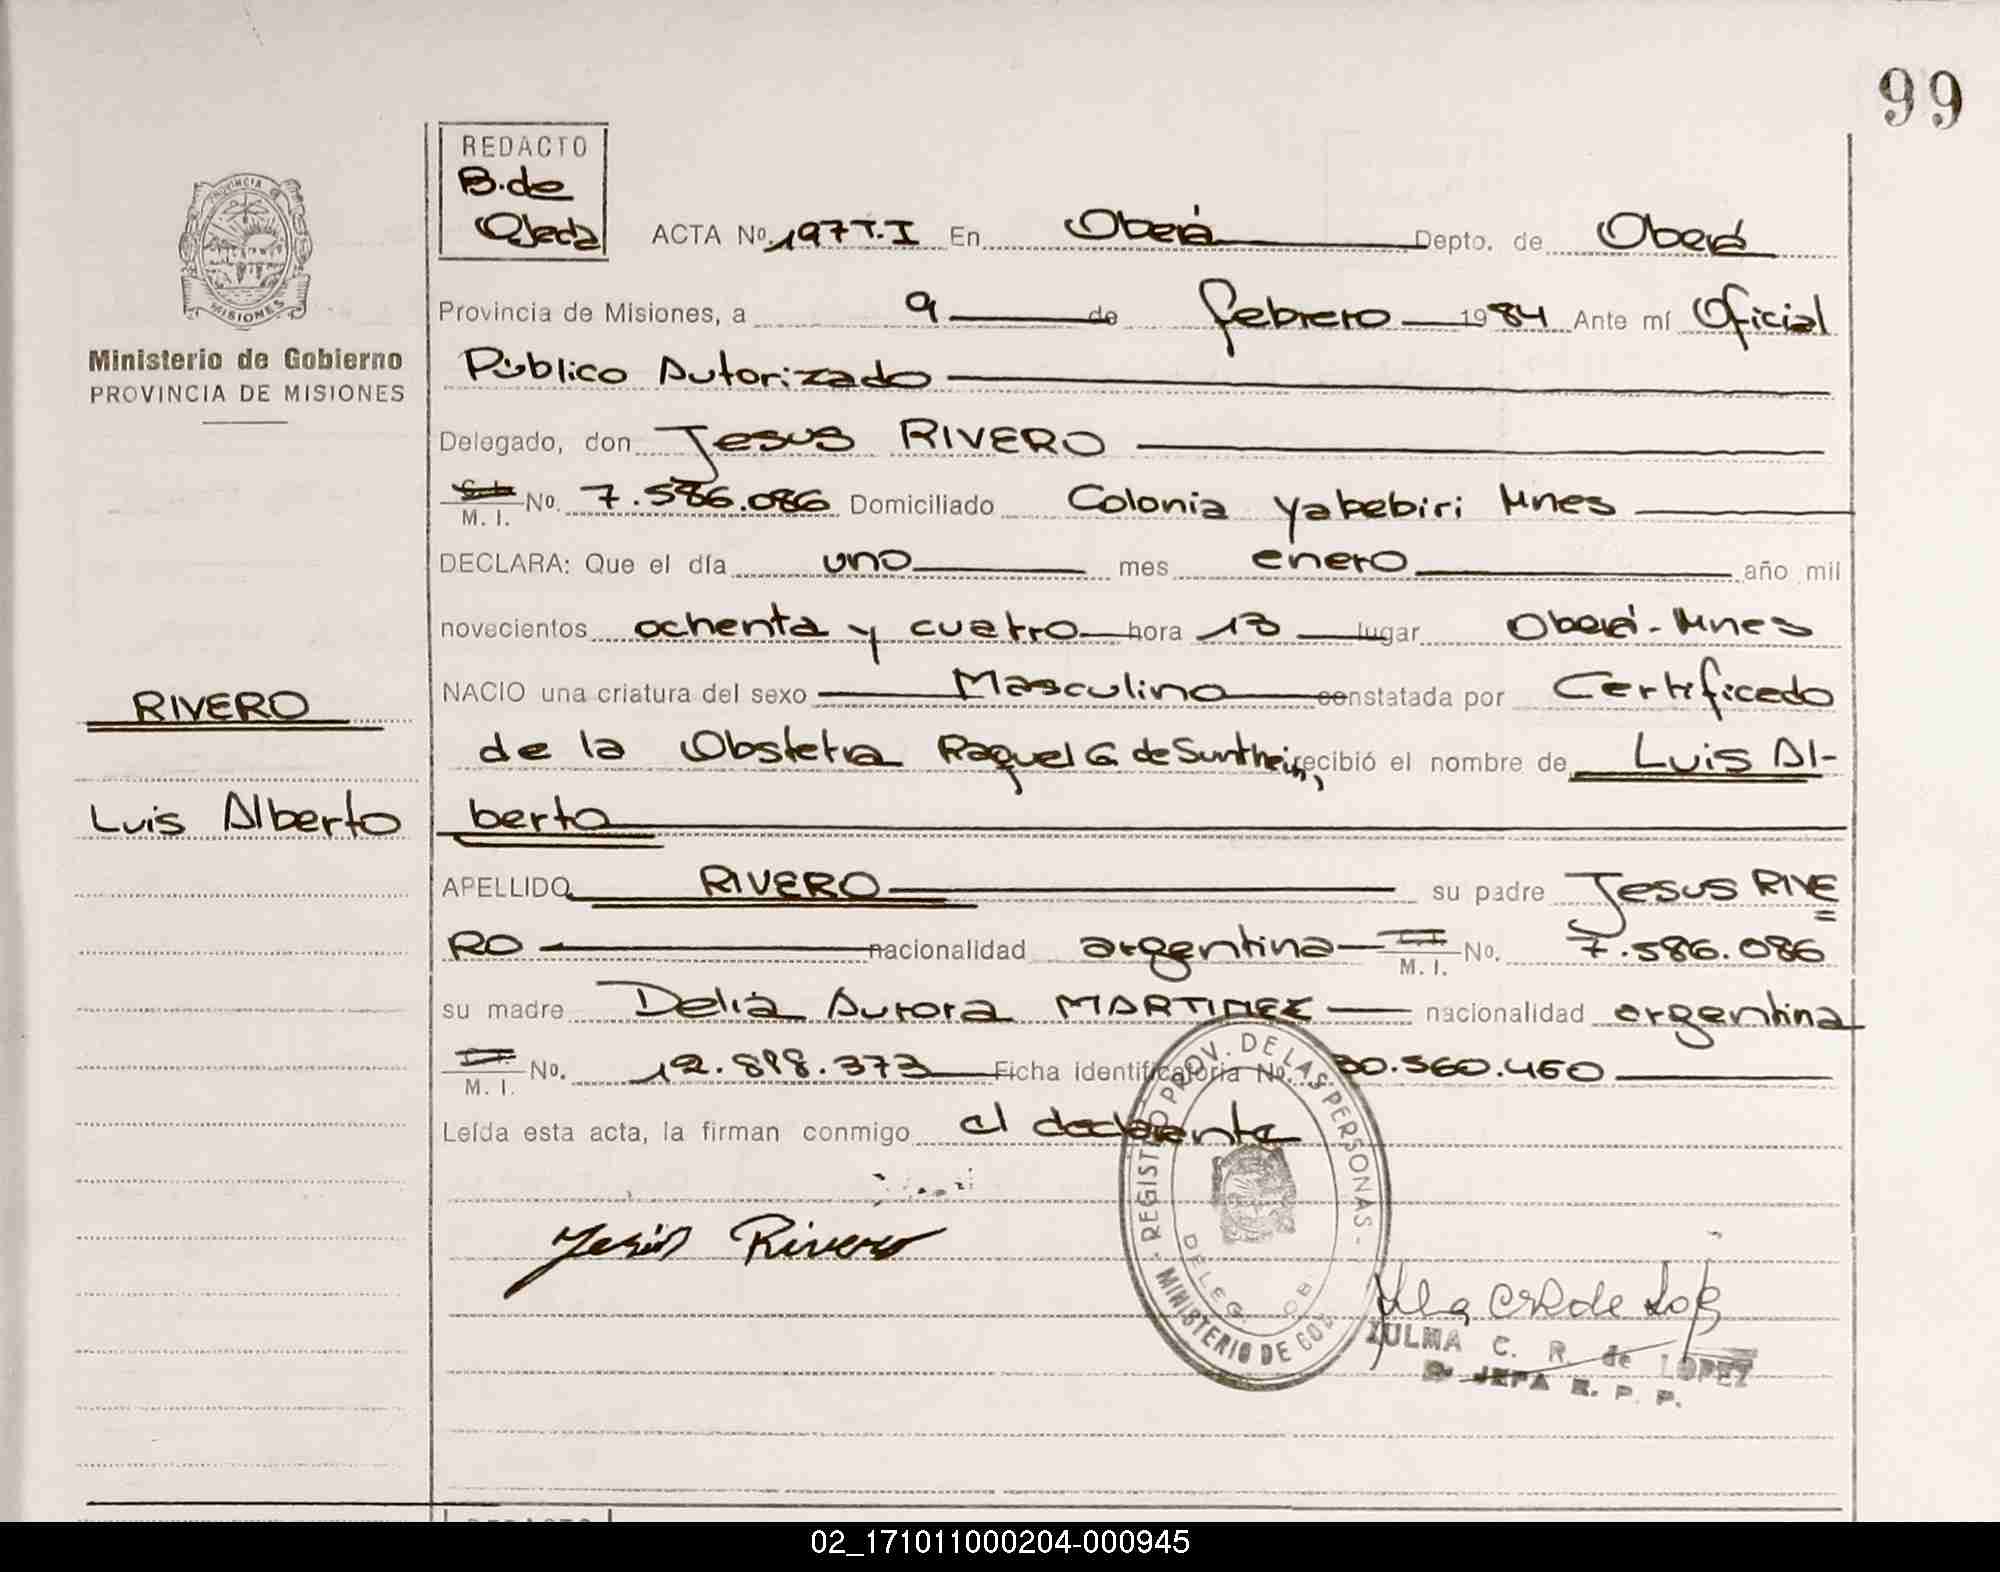 99
REDACTO
B. de
Ojeda
ACTA Nº 197 T.I En Oberá Depto. de Oberá
PROVINCIA DE
MISIONES
Ministerio de Gobierno
PROVINCIA DE MISIONES
Provincia de Misiones, a 9 de febrero 1984 Ante mí Oficial
Público Autorizado
Delegado, don Jesus RIVERO
M. I. Nº. 7.586.086 Domiciliado Colonia Yabebiri Mnes
DECLARA: Que el día uno mes enero año mil
novecientos ochenta y cuatro hora 13 lugar Oberá - Mnes
RIVERO
NACIO una criatura del sexo Masculino constatada por Certificado
de la Obstetra Raquel G. de Sunthein, recibió el nombre de Luis Al-
Luis Alberto
berto
APELLIDO RIVERO su padre Jesus RIVE
RO nacionalidad argentina M. I. No. 7.586.086
su madre Delia Aurora MARTINEZ nacionalidad argentina
M. I. No. 12.898.373 Ficha identificatoria No. 30.560.460
Leída esta acta, la firman conmigo el declarante
REGISTRO PROV. DE LAS PERSONAS
DELEG. OB
MINISTERIO DE GOB
Jesús Rivero
ZULMA C. R. de LOPEZ
JEFA R. P. P.
REDACTO
02_171011000204-000945